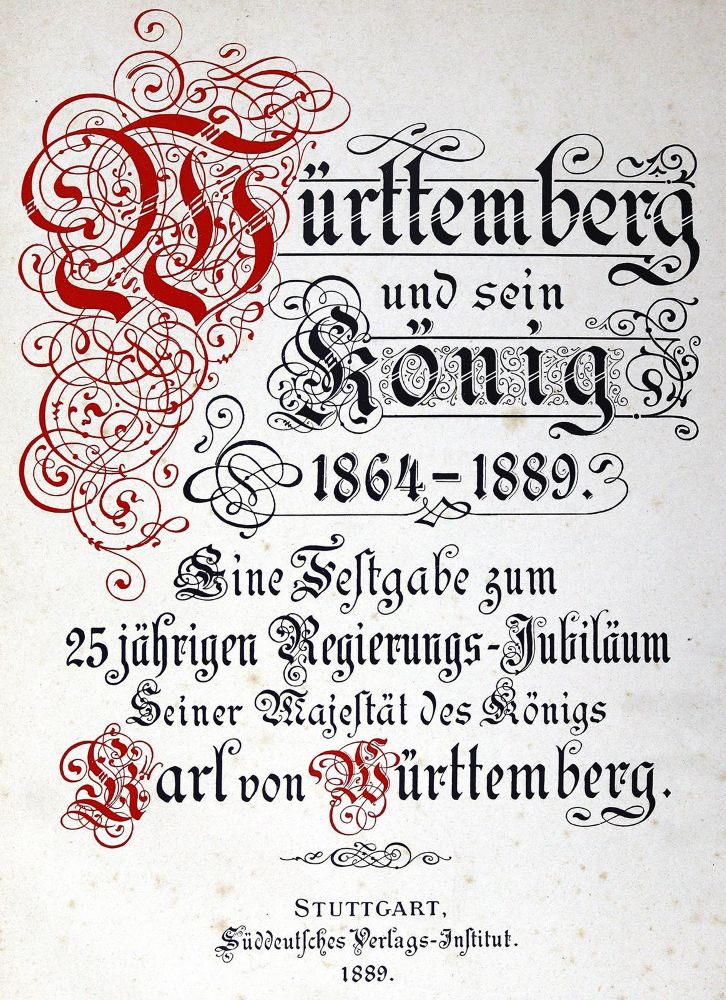 Württemberg
und sein
König
1864–1889.
Eine Feſtgabe zum
25jährigen Regierungs-Jubiläum
Seiner Majeſtät des Königs
Karl von Württemberg.
STUTTGART,
Süddeutſches Verlags-Inſtitut.
1889.